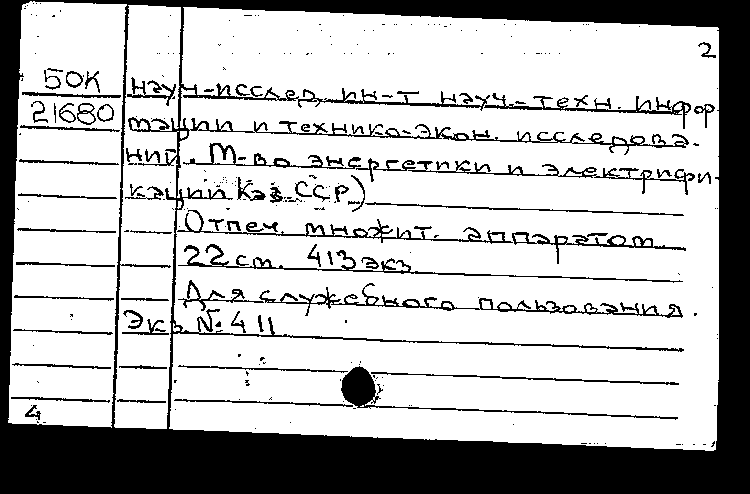 2
50К науч-исслед. ин-т науч.-техн. инфор
21680 мации и технико-экон. исследова-
ний. М-во энергетики и электрифи-
кации Каз ССР)
Отпеч. множит. аппаратом
22 см. 413 экз
Для служебного пользования.
Экз. № 411
4